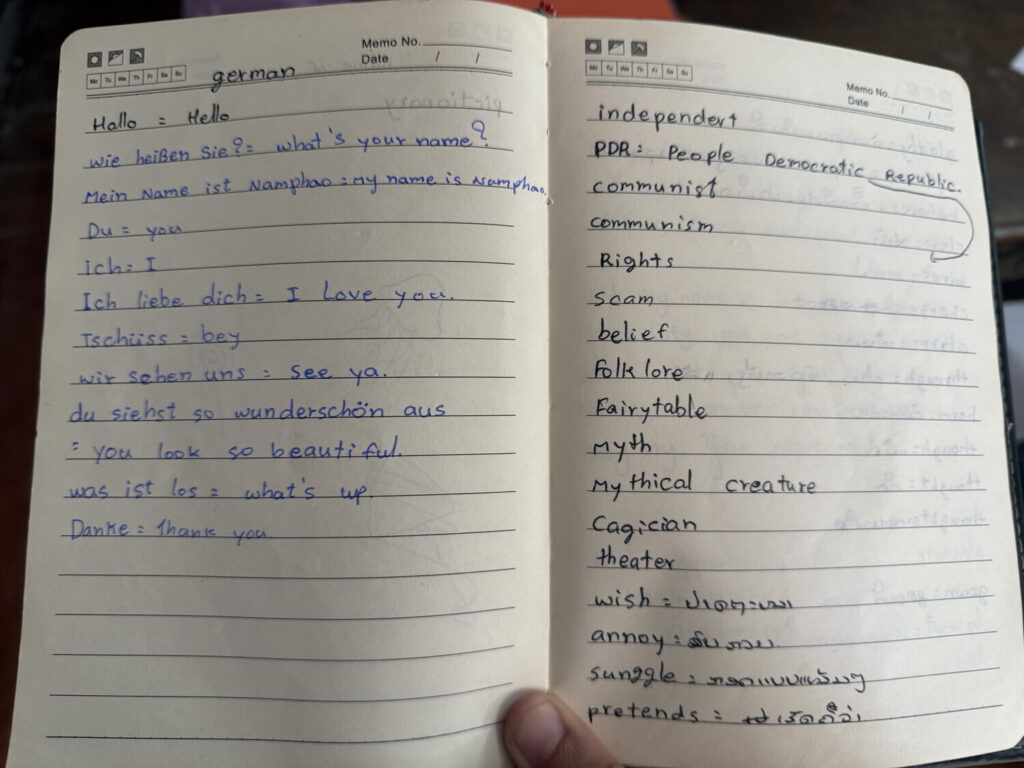 Memo No.
Date / /
Mo Tu We Th Fr Sa Su
german
Hallo = Hello
wie heißen Sie?= what's your name?
Mein Name ist Namphao = My name is Namphao.
Du = you
ich = I
Ich liebe dich = I Love you.
Tschüss = bey
wir sehen uns = see ya.
du siehst so wunderschön aus
= you look so beautiful.
was ist los = what's up.
Danke = thank you.
Memo No.
Date / /
Mo Tu We Th Fr Sa Su
independent
PDR: People Democratic Republic.
communist
communism
Rights
scam
belief
folk lore
Fairytable
Myth
Mythical creature
Cagician
theater
wish = ປາດຖະໜາ
annoy = ລົບກວນ
sunggle = ກອດແບບແໜ້ນໆ
pretends = ເຮັດຄືວ່າ